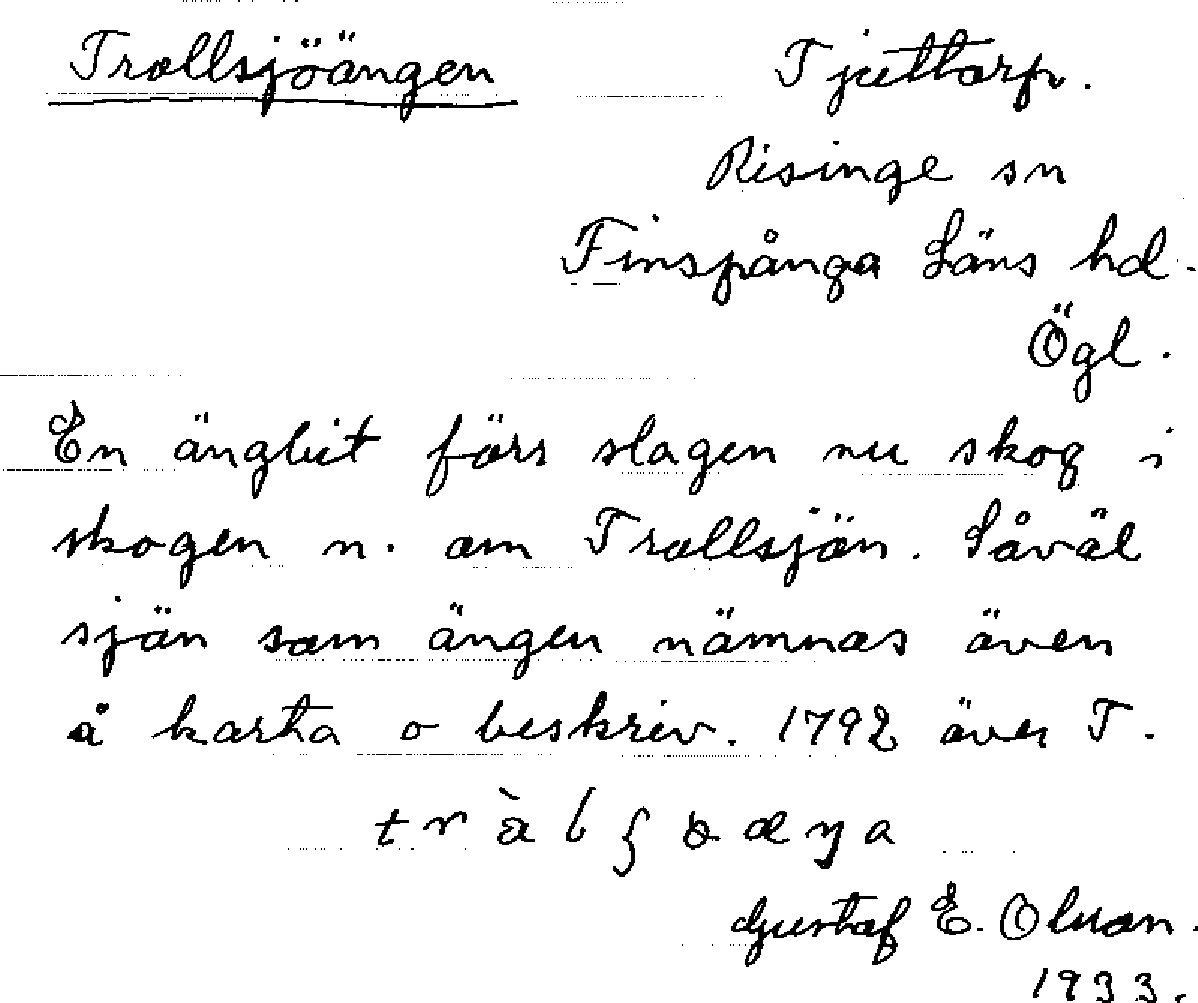 Trollsjöängen Tjuttorp.
Risinge sn
Finspånga Läns hd.
Ögl.
En ängbit förr slagen nu skog i
skogen n. om Trollsjön. Såväl
sjön som ängen nämnas även
å karta o beskriv. 1792 över T.
Gustaf E. Olson.
1933.